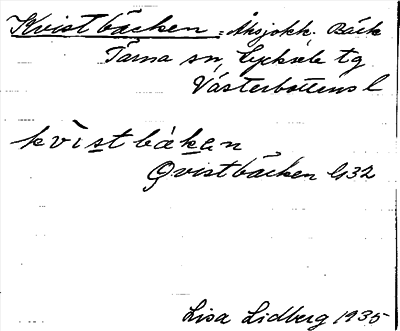 Kvistbäcken = Åksjokk. Bäck
Tärna sn, Lycksele tg
Västerbottens l
kvistbäkan
Qvistbäcken G32
Lisa Lidberg 1935